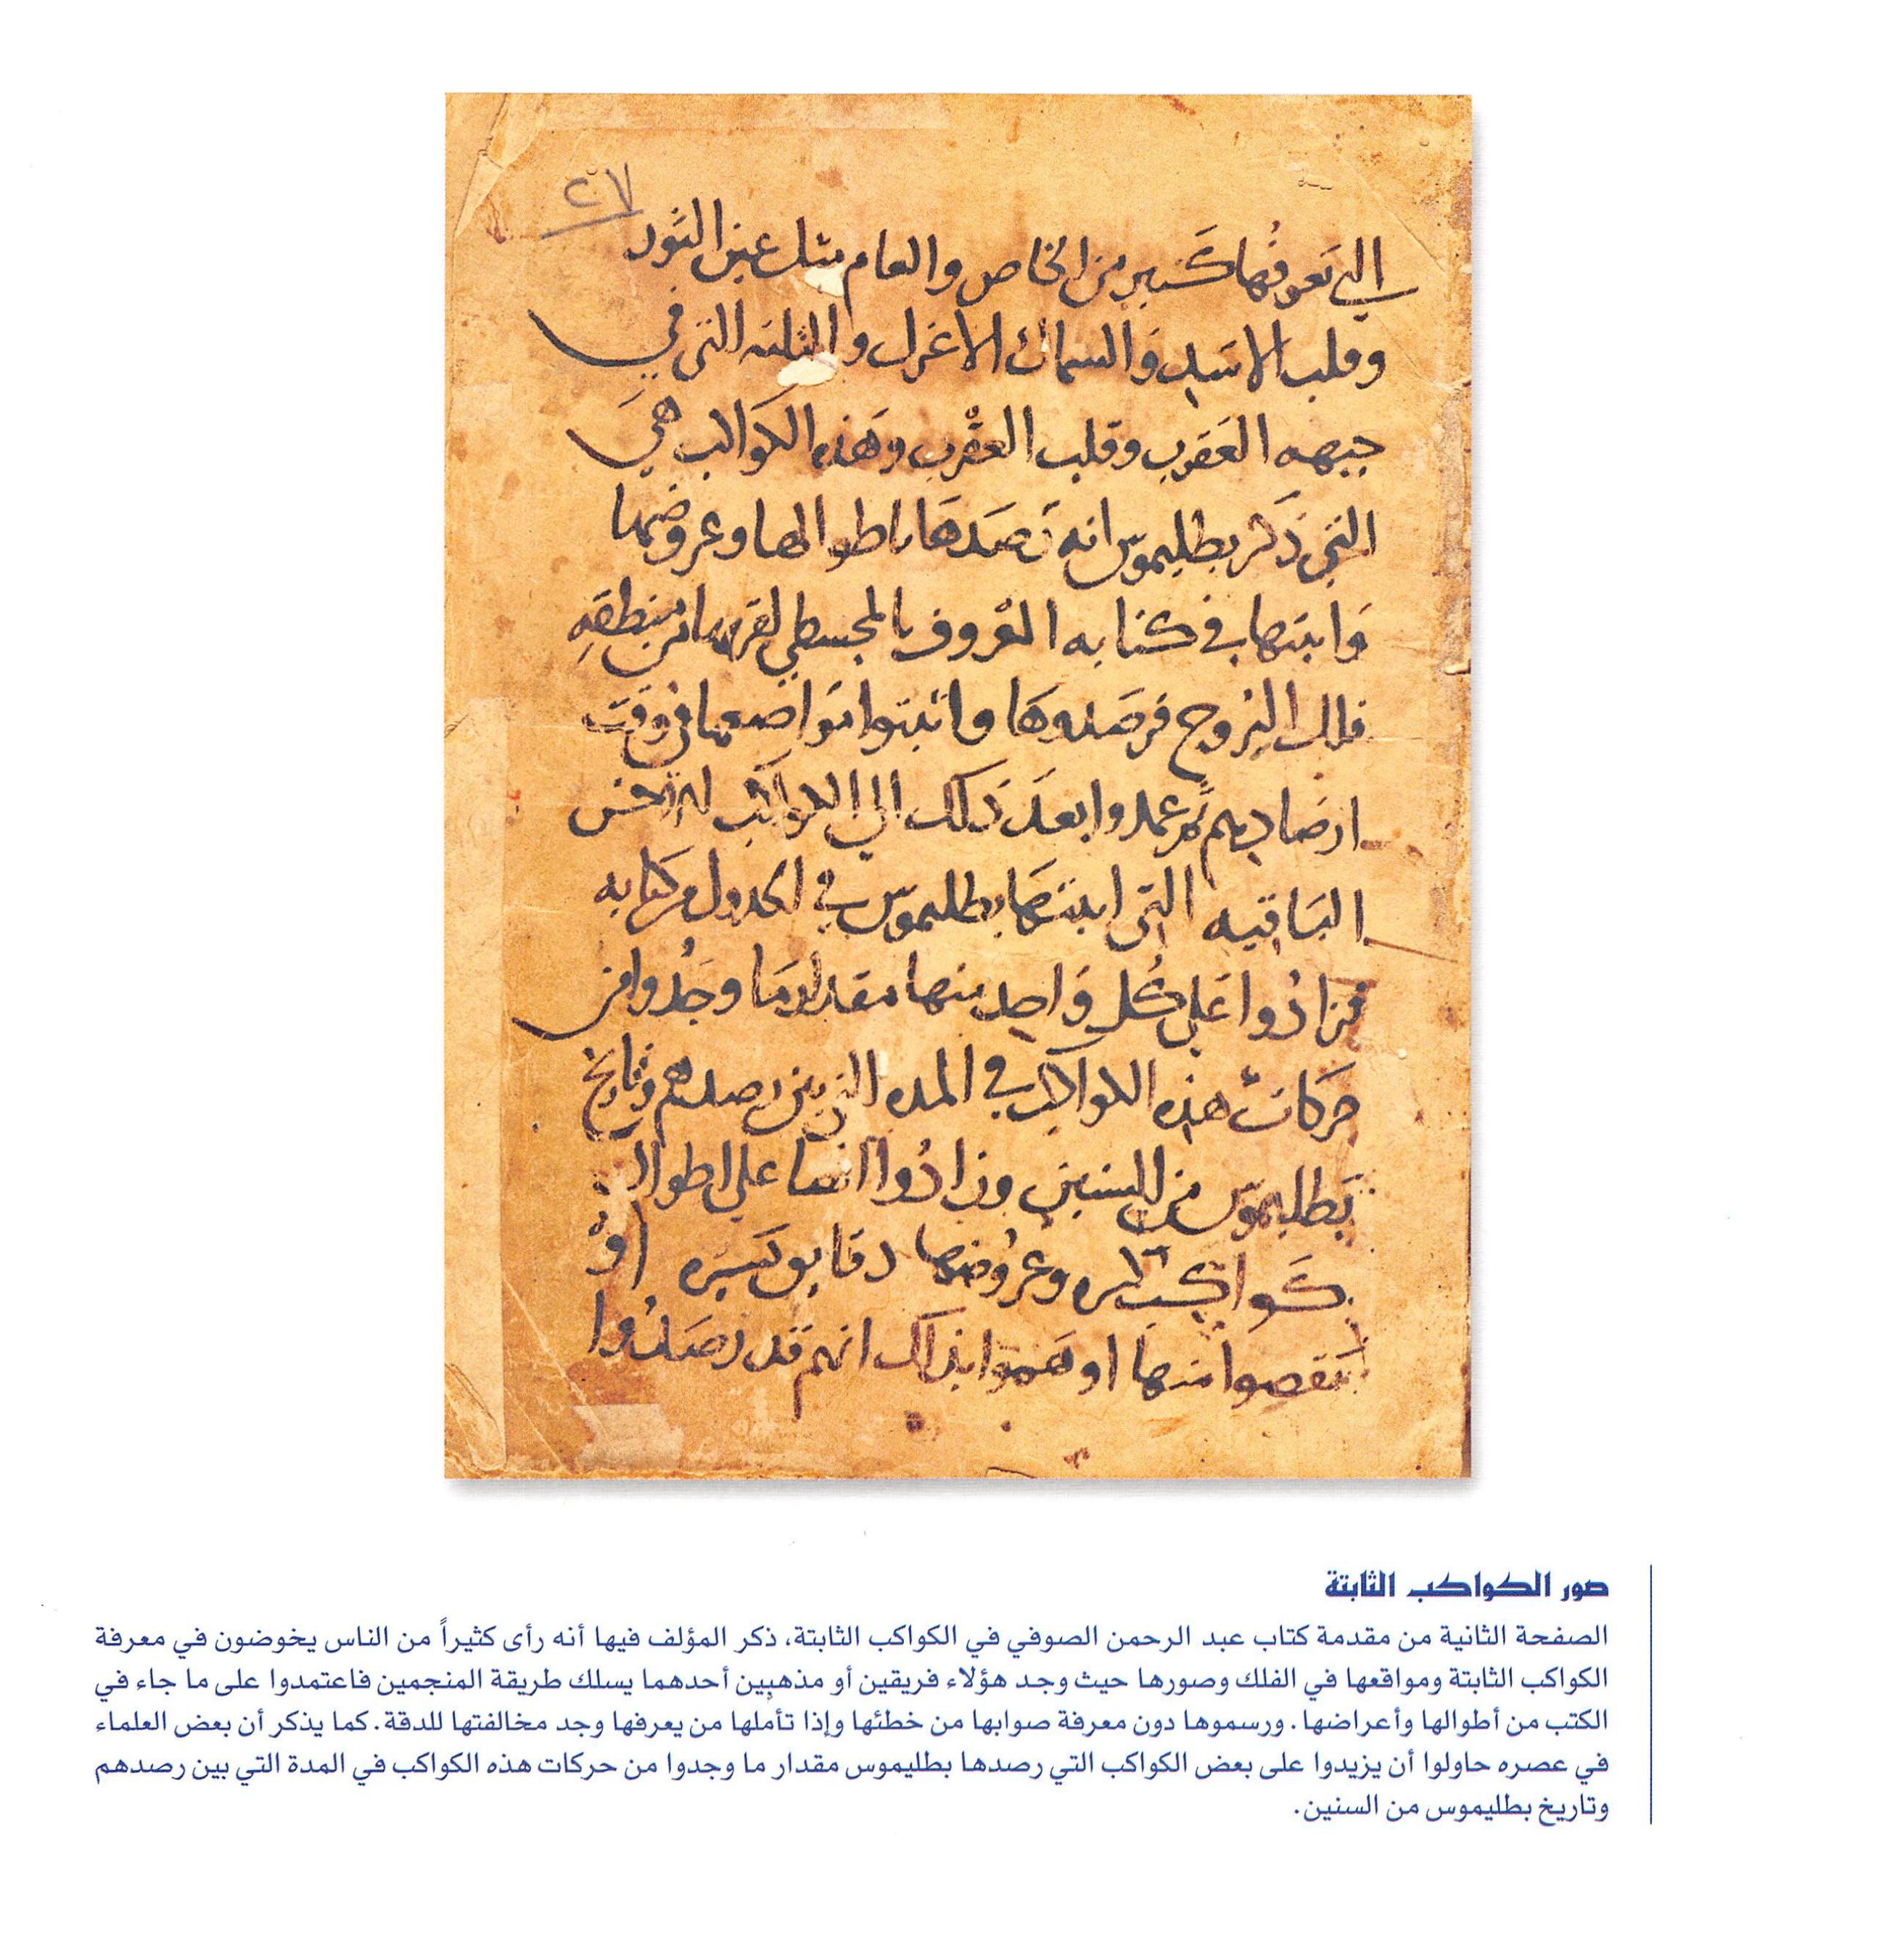 ٢٧
التي يعرفها كثير من الخاص والعام مثل عين الثور
وقلب الاسد والسماك الاعزل والثلثه التي في
جبهه العقرب وقلب العقرب وهذه الكواكب هي
التي ذكر بطليموس انه رصدها باطوالها وعروضها
واثبتها في كتابه المعروف بالمجسطي لقربها من منطقه
فلك البروج فرصدوها واثبتوا مواضعها في وقت
ارصادهم ثم عمدوا بعد ذلك الي الكواكب
الباقيه التي اثبتها بطليموس في الجدول من كتابه
فزادوا علي كل واحد منها مقدار ما وجدوا من
حركات هذه الكواكب في المده التي بين رصدهم وتاريخ
بطليموس من السنين وزادوا ايضا علي اطوال
كواكب كثيره وعروضها دقايق يسيره او
نقصوا منها اوهموا بذلك انهم قد رصدوا
صور الكواكب الثابتة
الصفحة الثانية من مقدمة كتاب عبد الرحمن الصوفي في الكواكب الثابتة، ذكر المؤلف فيها أنه رأى كثيراً من الناس يخوضون في معرفة
الكواكب الثابتة ومواقعها في الفلك وصورها حيث وجد هؤلاء فريقين أو مذهبين أحدهما يسلك طريقة المنجمين فاعتمدوا على ما جاء في
الكتب من أطوالها وأعراضها. ورسموها دون معرفة صوابها من خطئها وإذا تأملها من يعرفها وجد مخالفتها للدقة. كما يذكر أن بعض العلماء
في عصره حاولوا أن يزيدوا على بعض الكواكب التي رصدها بطليموس مقدار ما وجدوا من حركات هذه الكواكب في المدة التي بين رصدهم
وتاريخ بطليموس من السنين.